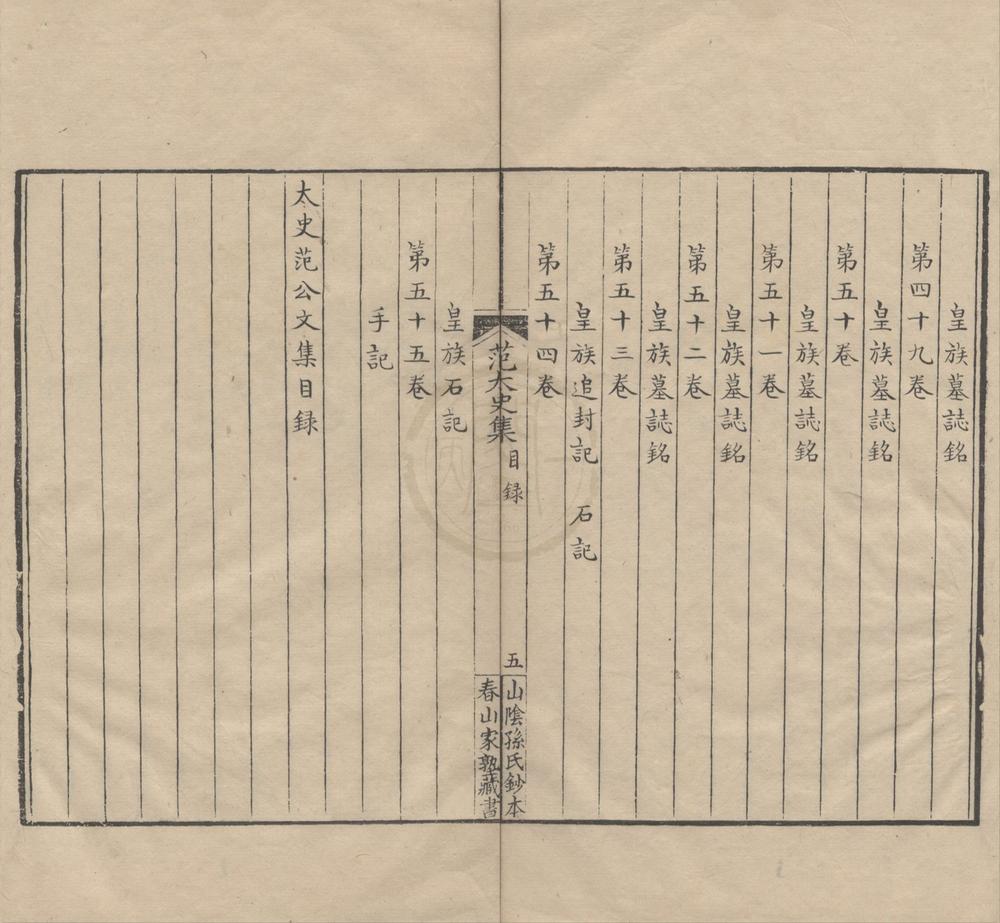 皇族墓誌銘
第四十九卷
皇族墓誌銘
第五十卷
皇族墓誌銘
第五十一卷
皇族墓誌銘
第五十二卷
皇族墓誌銘
第五十三卷
皇族追封記　石記
第五十四卷
范太史集
目録
五
山陰孫氏鈔本
春山家塾藏書
皇族石記
第五十五卷
手記
太史范公文集目録